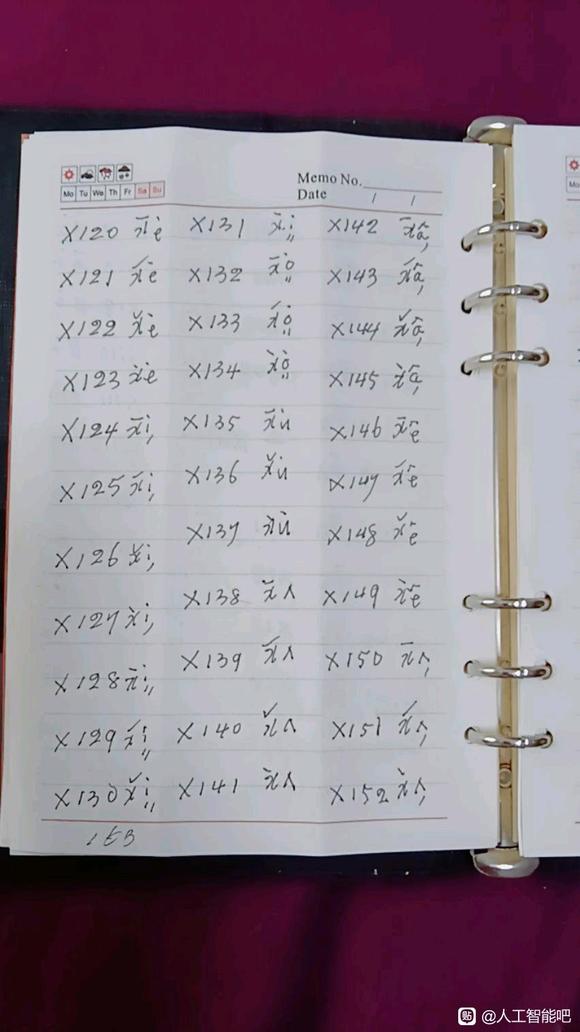 Memo No.
Mo Tu We Th Fr Sa Su
Date / /
X120 x̄ė X131 x̄i̇„ X142 x̄â,
X121 x́ė X132 x̄ȯ„ X143 x́â,
X122 x̌ė X133 x́ȯ„ X144 x̌â,
X123 x̀ė X134 x̀ȯ„ X145 x̀â,
X124 x̄i̇, X135 x̄u̇ X146 x̄ê
X125 x́i̇, X136 x̌u̇ X147 x́ê
X126 x̌i̇, X137 x̀u̇ X148 x̌ê
X127 x̀i̇, X138 x̄ʌ X149 x̀ê
X128 x̄i̇„ X139 x́ʌ X150 x̄ʌ,
X129 x́i̇„ X140 x̌ʌ X151 x́ʌ,
X130 x̌i̇„ X141 x̀ʌ X152 x̌ʌ,
贴 @人工智能吧